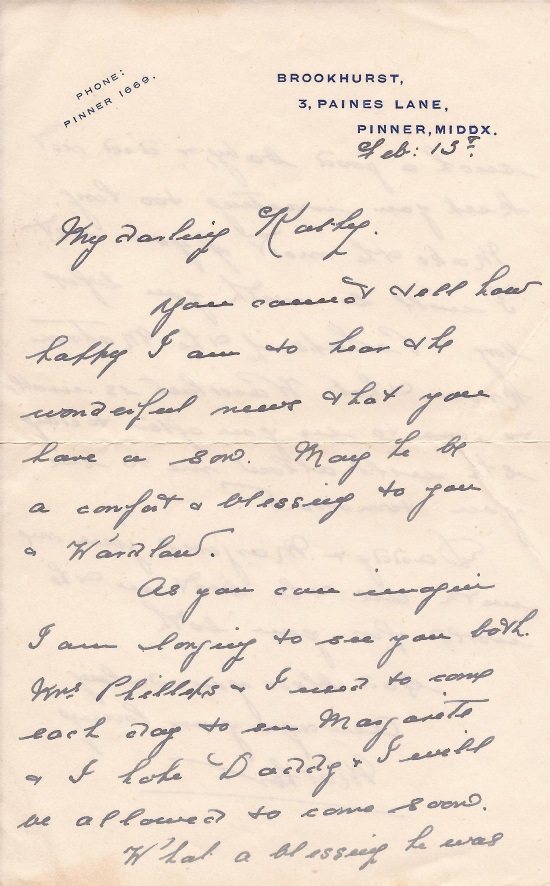 PHONE:
PINNER 1669.
BROOKHURST,
3, PAINES LANE,
PINNER, MIDDX.
Feb: 13th
My darling Kathy.
You cannot tell how
happy I am to hear the
wonderful news that you
have a son. May he be
a comfort & blessing to you
& Wardlaw.
As you can imagin
I am longing to see you both.
Mrs Phillips & I used to come
each day to see Margarite
& I hope Daddy & I will
be allowed to come soon.
What a blessing he was